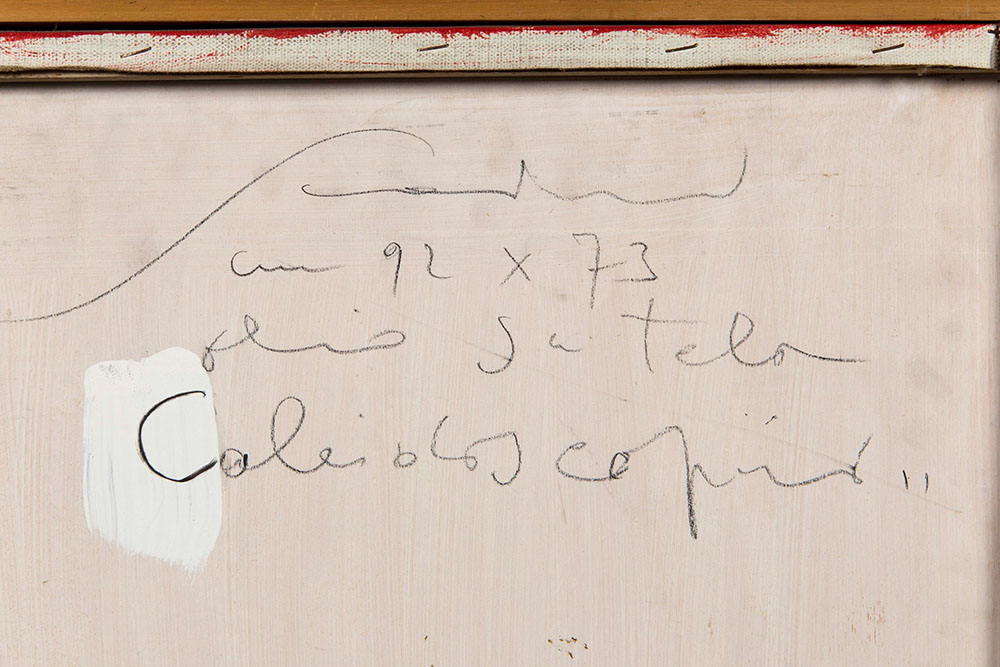 cm 92 x 73
olio su tela
Caleidoscopio "